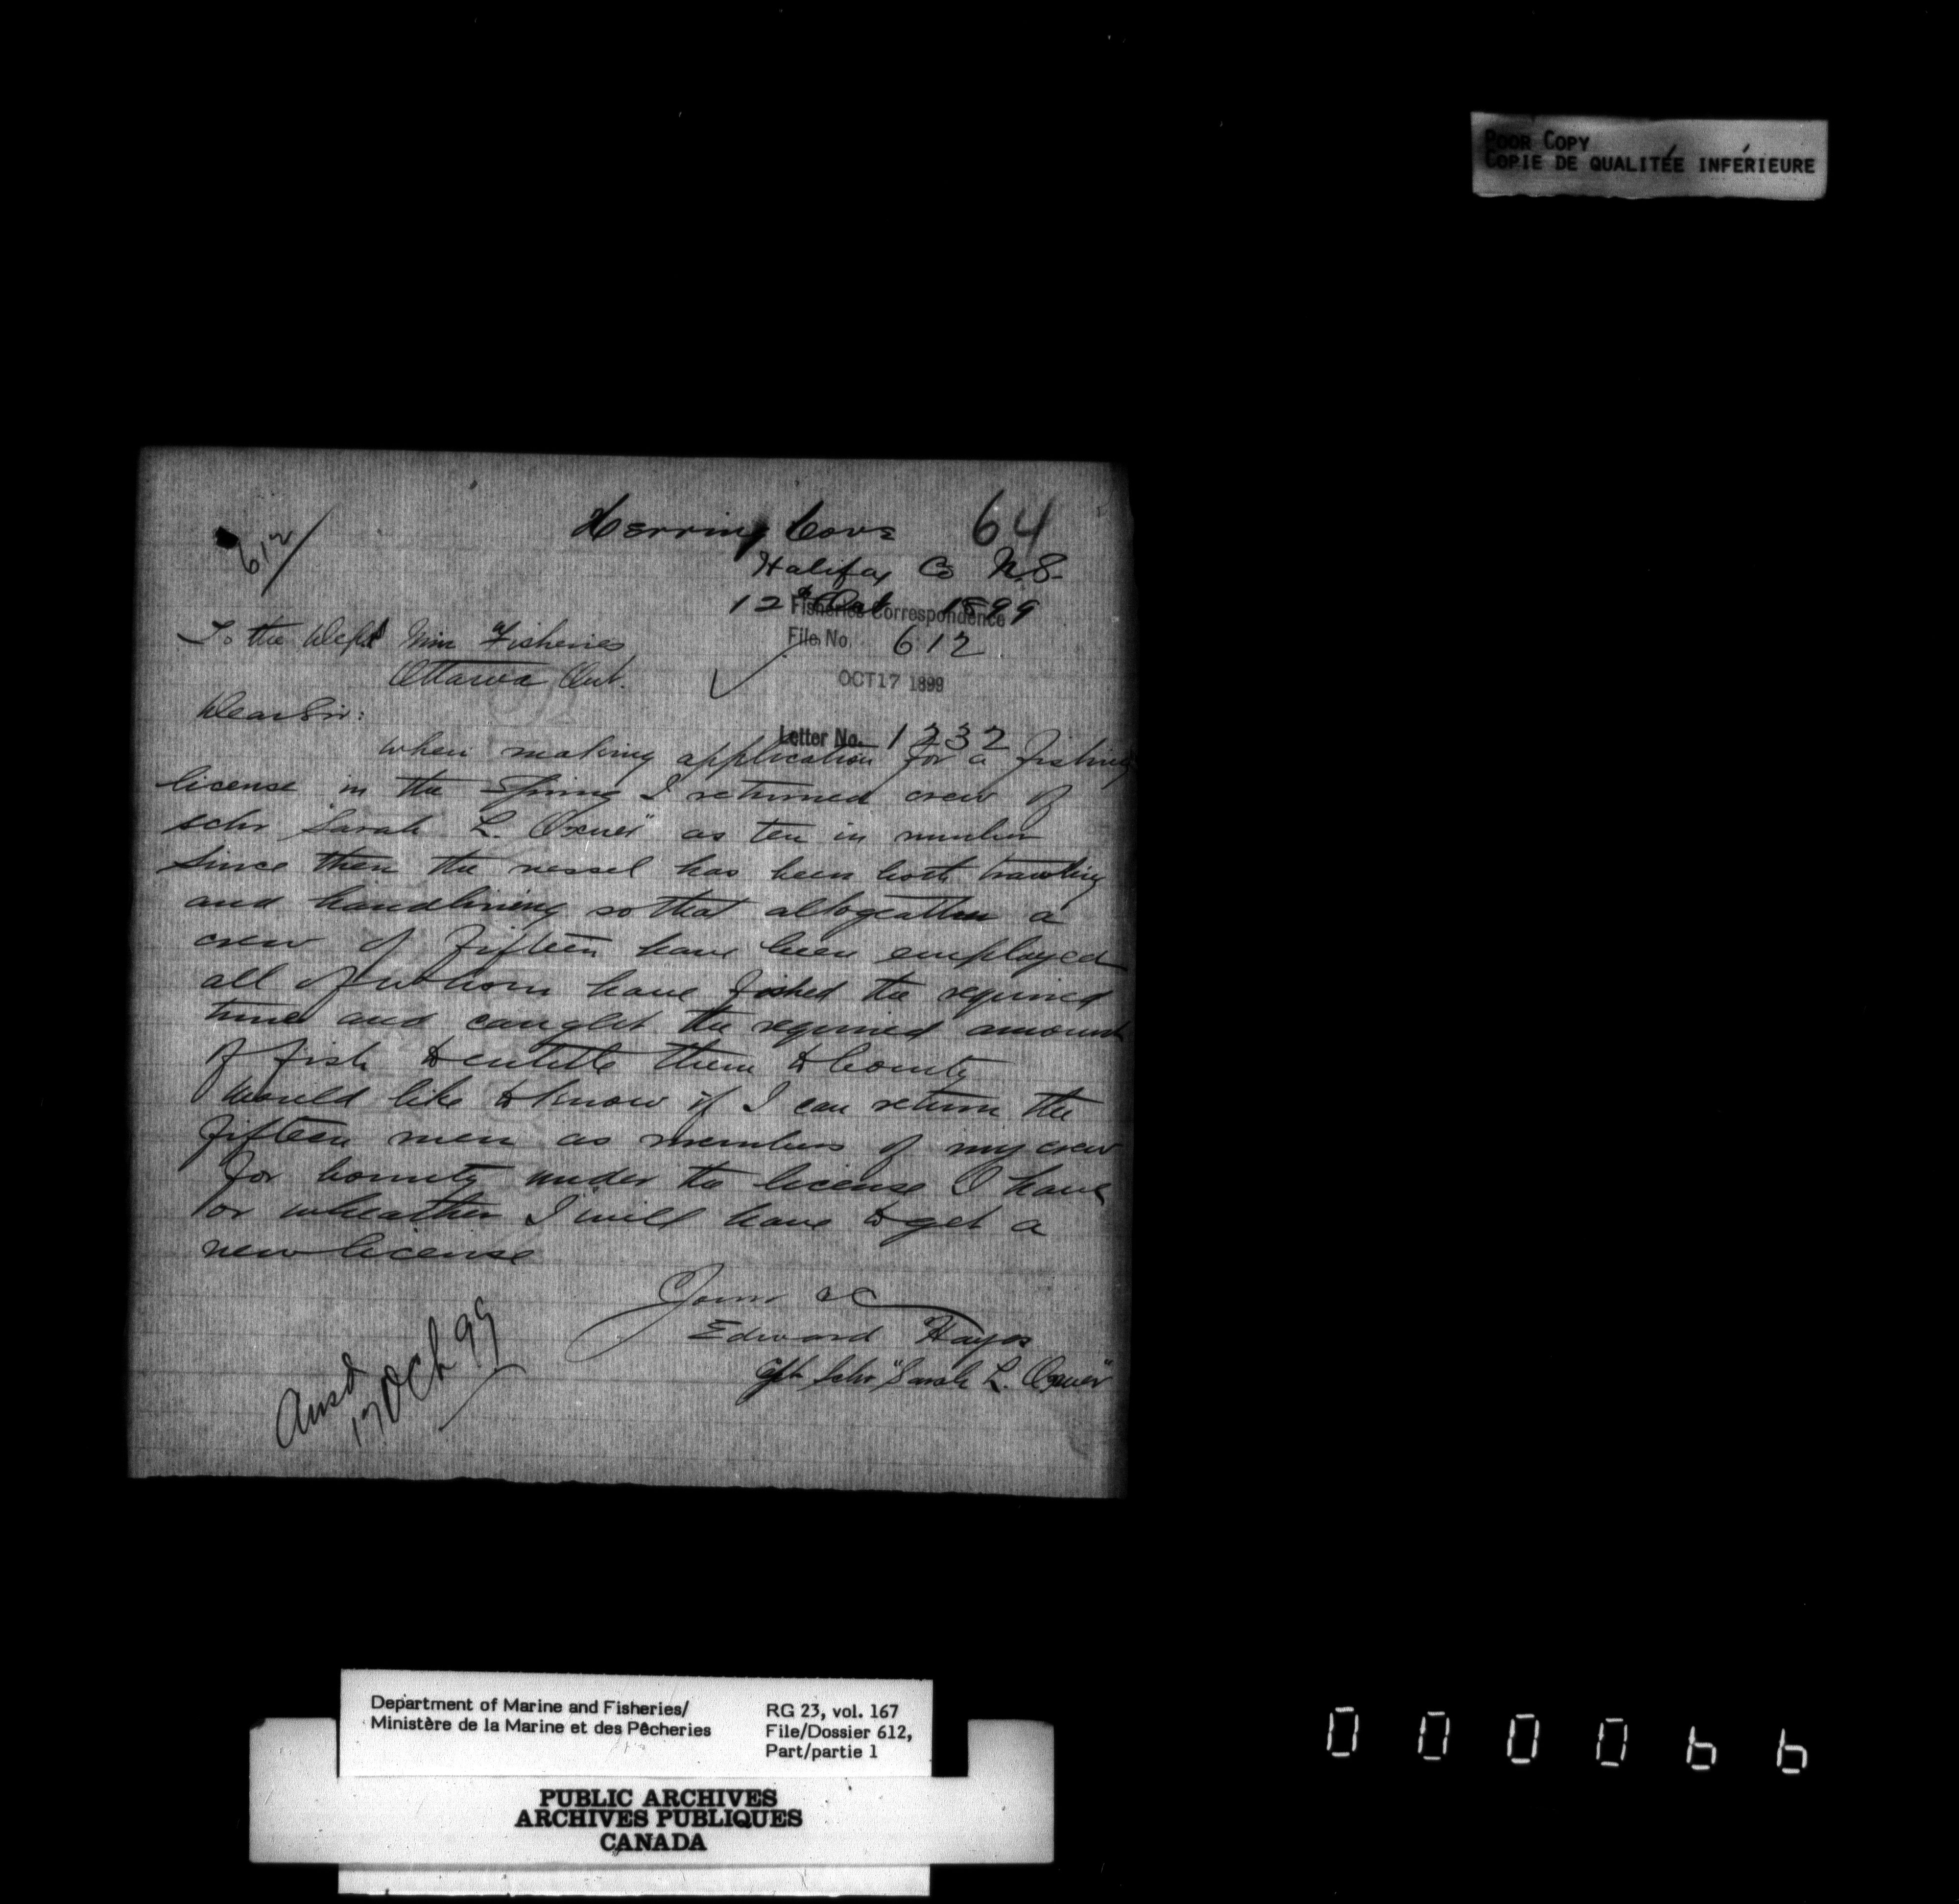 POOR COPY
COPIE DE QUALITÉE INFÉRIEURE
612
Herring Cove 64
Halifax Co N.S.
12th Oct 1899
Fisheries Correspondence
File No. 612
OCT 17 1899
Letter No. 1232
To the Dept Min Fisheries
Ottawa Ont.
Dear Sir:
When making application for a fishing
license in the Spring I returned crew of
schr "Sarah L. Oxner" as ten in number
Since then the vessel has been both trawling
and handlining so that altogeather a
crew of fifteen have been employed
all of whom have fished the required
time and caught the required amount
of fish to entitle them to bounty
Would like to know if I can return the
fifteen men as members of my crew
for bounty under the license I have
or wheather I will have to get a
new license
Yours &c
Edward Hayes
Capt Schr "Sarah L. Oxner"
Ansd
17 Oct 99
Department of Marine and Fisheries/
Ministère de la Marine et des Pêcheries
RG 23, vol. 167
File/Dossier 612,
Part/partie 1
PUBLIC ARCHIVES
ARCHIVES PUBLIQUES
CANADA
000066